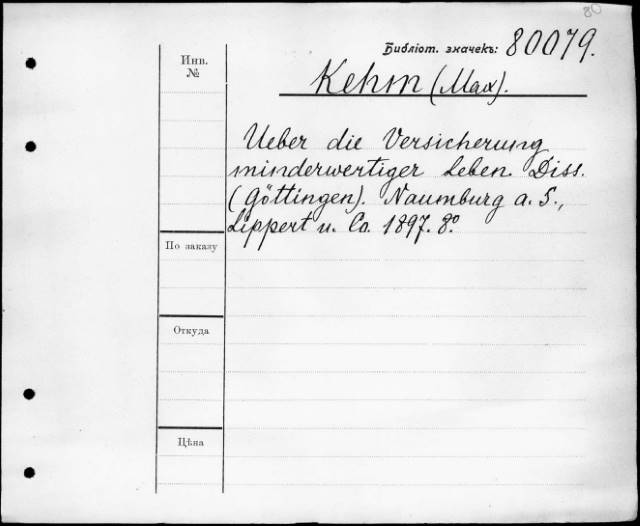 80
Библіот. значекъ: 80079.
Инв.
№
Kehm (Max).
Ueber die Versicherung
minderwertiger Leben. Diss.
(Göttingen). Naumburg a. S.,
Lippert u. Co. 1897. 8º.
По заказу
Откуда
Цѣна